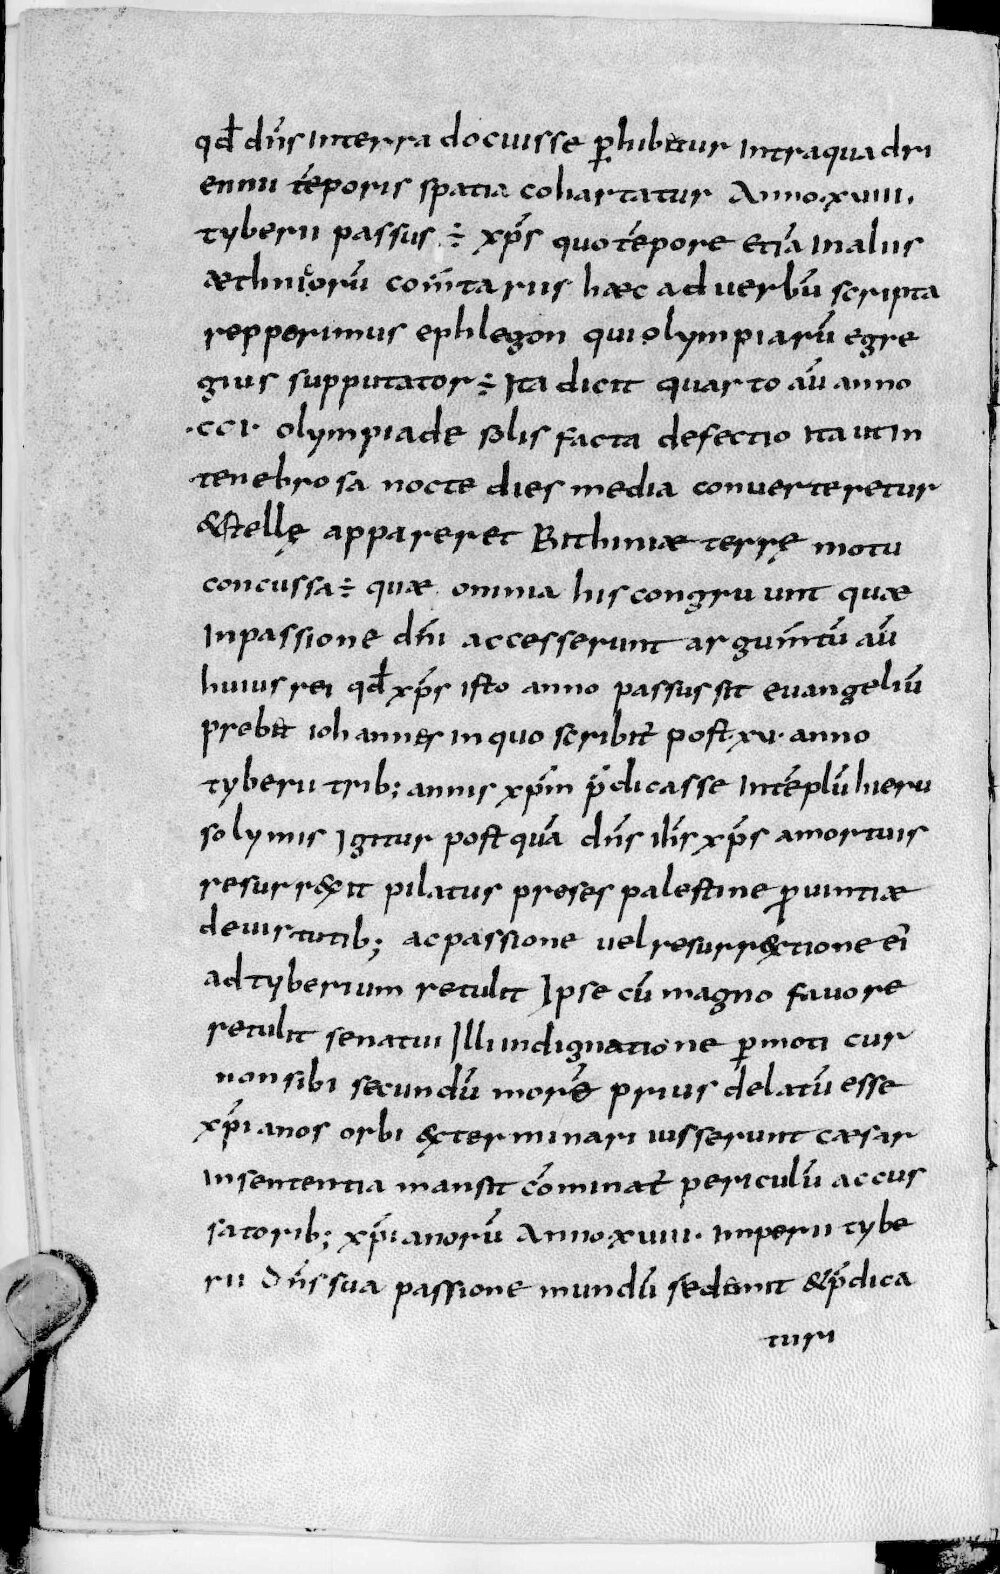 qđ dn̄s interra docuisse ꝑhibetur intraquadri
ennii tēporis spatia cohartatur Anno·xviii·
tyberii passus ÷ xp̄s quotēpore etiā inaliis
æthnicorū com̄tariis hæc aduerbū scripta
repperimus ephlegon qui olympiarū egre
gius supputator ÷ Ita dicit quarto aū anno
·cci· olympiade solis facta defectio itautin
tenebrosa nocte dies media conuerteretur
&stellę appareret Bithiniæ terrę motu
concussa ÷ quæ omnia his congruunt quæ
inpassione dn̄i accesserunt argum̄tū aū
huius rei qđ xp̄s isto anno passus sit euangeliū
prebet iohannes inquo scribit̄ post·xv·anno
tyberii trib; annis xp̄m p̄dicasse intēplū hieru
solymis Igitur postquā dn̄s ih̄s xp̄s amortuis
resurrexit pilatus preses palestine ꝓuintiæ
deuirtutib; acpassione uel resurrectione ei
adtyberium retulit Ipse cū magno fauore
retulit senatui Illi indignatione ꝑmoti cur
nonsibi secundū morē prius delatū esse
xp̄ianos orbi &cterminari iusserunt cæsar
insententia mansit cōminat̄ periculū accus
satorib; xp̄ianorū Anno·xviii· imperii tybe
rii Dn̄s sua passione mundū &p̄dica
turi